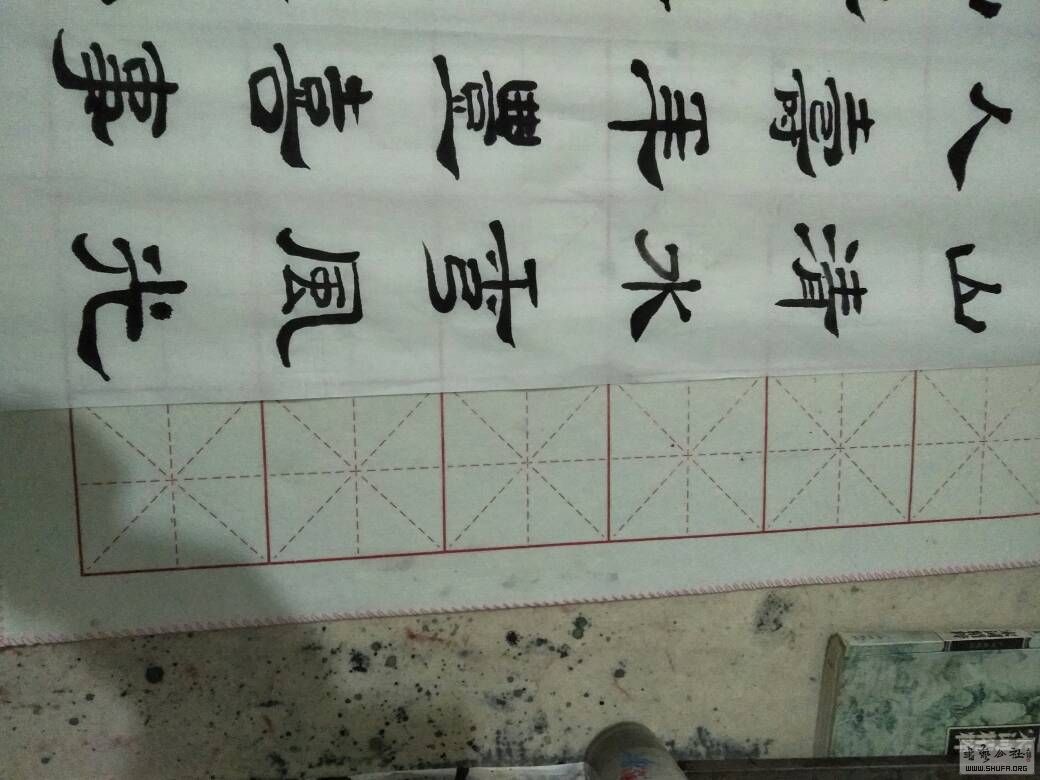 山清水秀風光
人壽年豐喜事
书艺公社
WWW.SHUFA.ORG